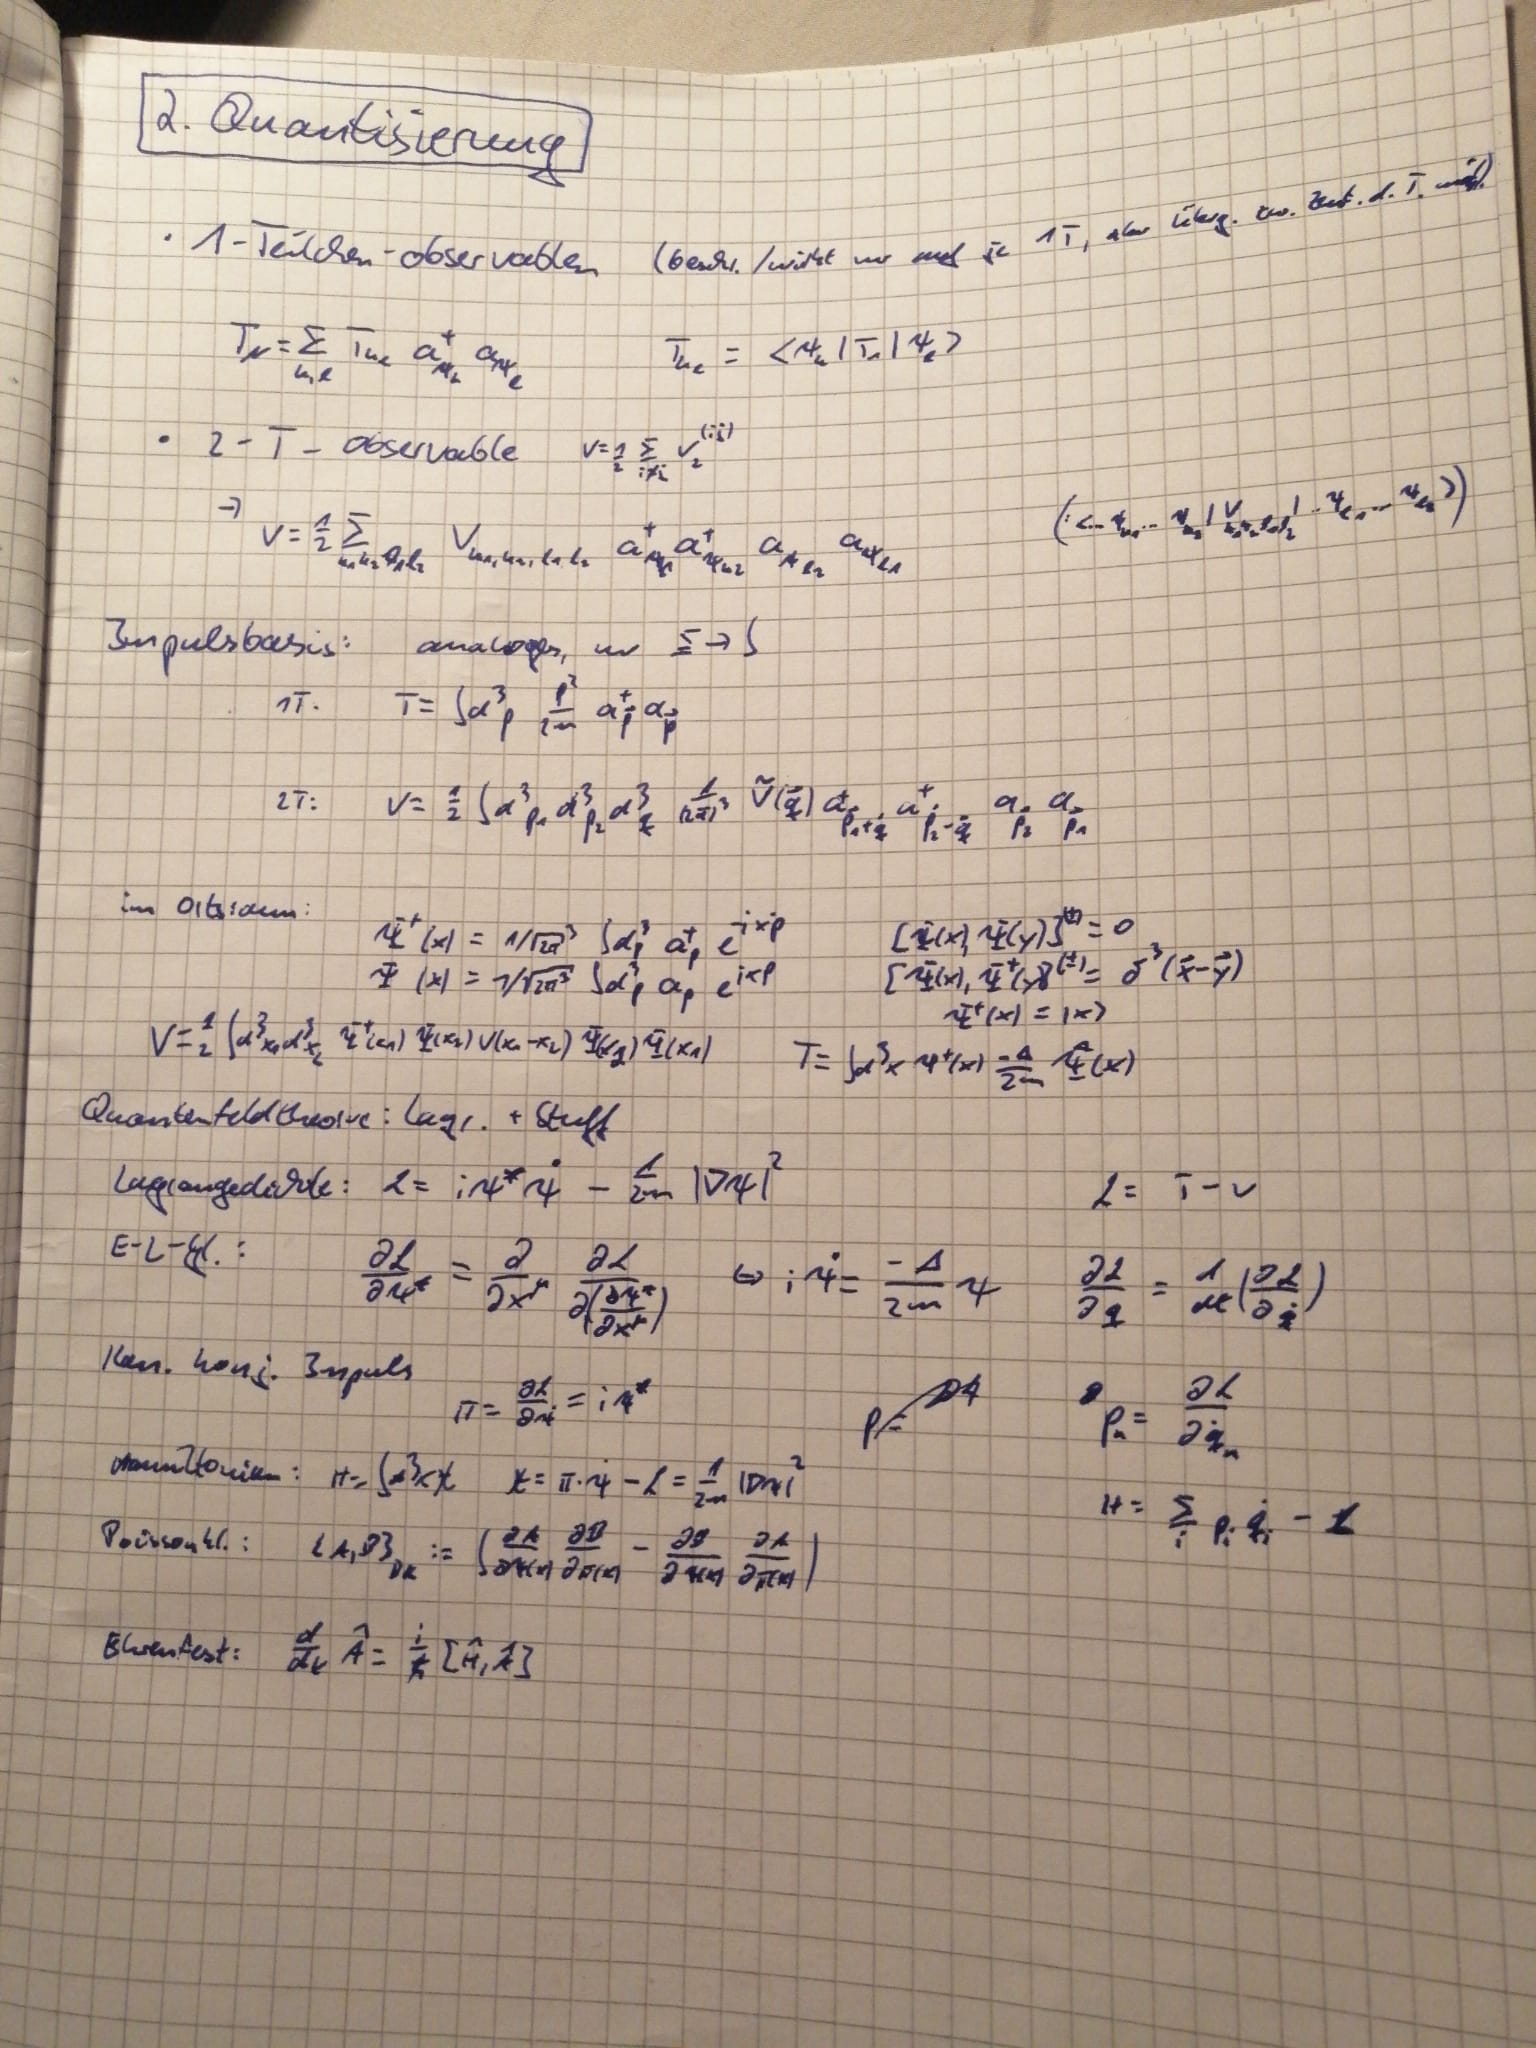 2. Quantisierung
· 1-Teilchen-observablen (beschr./wirkt nur auf je 1T, aber Überg. zw. Zust. d. T. mögl.)
T_N = Σ_{k,l} T_{kl} a⁺_{ψ_k} a_{ψ_l} T_{kl} = <ψ_k|T_1|ψ_l>
· 2-T-observable V = 1/2 Σ_{i≠j} V_2^{(ij)}
→ V = 1/2 Σ_{k1 k2 l1 l2} V_{k1,k2,l1,l2} a⁺_{ψ_{k1}} a⁺_{ψ_{k2}} a_{ψ_{l2}} a_{ψ_{l1}}
Impulsbasis: analoges, nur Σ → ∫
1T. T = ∫d³p p²/2m a⁺_p a_p
2T: V = 1/2 ∫d³p₁ d³p₂ d³q 1/(2π)³ Ṽ(q) a⁺_{p₁+q} a⁺_{p₂-q} a_{p₂} a_{p₁}
im Ortsraum:
Ψ⁺(x) = 1/√2π³ ∫d³p a⁺_p e^{-ixp} [Ψ(x), Ψ(y)]^{(±)} = 0
Ψ(x) = 1/√2π³ ∫d³p a_p e^{ixp} [Ψ(x), Ψ⁺(y)]^{(±)} = δ³(x-y)
Ψ⁺(x) = |x>
V = 1/2 ∫d³x₁ d³x₂ Ψ⁺(x₁) Ψ(x₂) V(x₁-x₂) Ψ(x₂) Ψ(x₁) T = ∫d³x Ψ⁺(x) -Δ/2m Ψ(x)
Quantenfeldtheorie: Lagr. + Stuff
Lagrangedichte: ℒ = iψ*ψ̇ - 1/2m |∇ψ|² L = T-V
E-L-Gl.: ∂ℒ/∂ψ* = ∂/∂x^μ ∂ℒ/∂(∂ψ*/∂x^μ) ⇔ iψ̇ = -Δ/2m ψ ∂L/∂q = d/dt (∂L/∂q̇)
Kan. konj. Impuls
π = ∂ℒ/∂ψ̇ = iψ* p_n = ∂L/∂q̇_n
Hamiltonian: H = ∫d³x ℋ ℋ = π·ψ̇ - ℒ = 1/2m |∇ψ|² H = Σ_i p_i q̇_i - L
Poissonkl.: {A,B}_{PK} := ∫(∂A/∂ψ(x) ∂B/∂π(x) - ∂B/∂ψ(x) ∂A/∂π(x))
Ehrenfest: d/dt Â = i/ħ [Ĥ, Â]